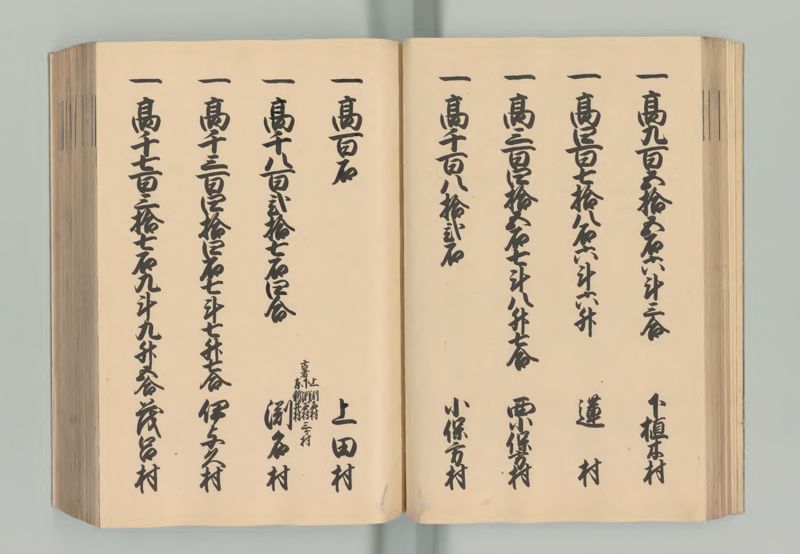 一高九百五拾五石六斗三合 下植木村
一高四百七拾八石六斗六升 蓮村
一高三百四拾五石七斗八升七合 西小保方村
一高千百八拾弐石 小保方村
一高百石 上田村
一高千八百弐拾七石四合 渕名村
一高千三百四拾四石七斗七升七合 伊与久村
一高千七百三拾七石九斗九升五合 茂呂村